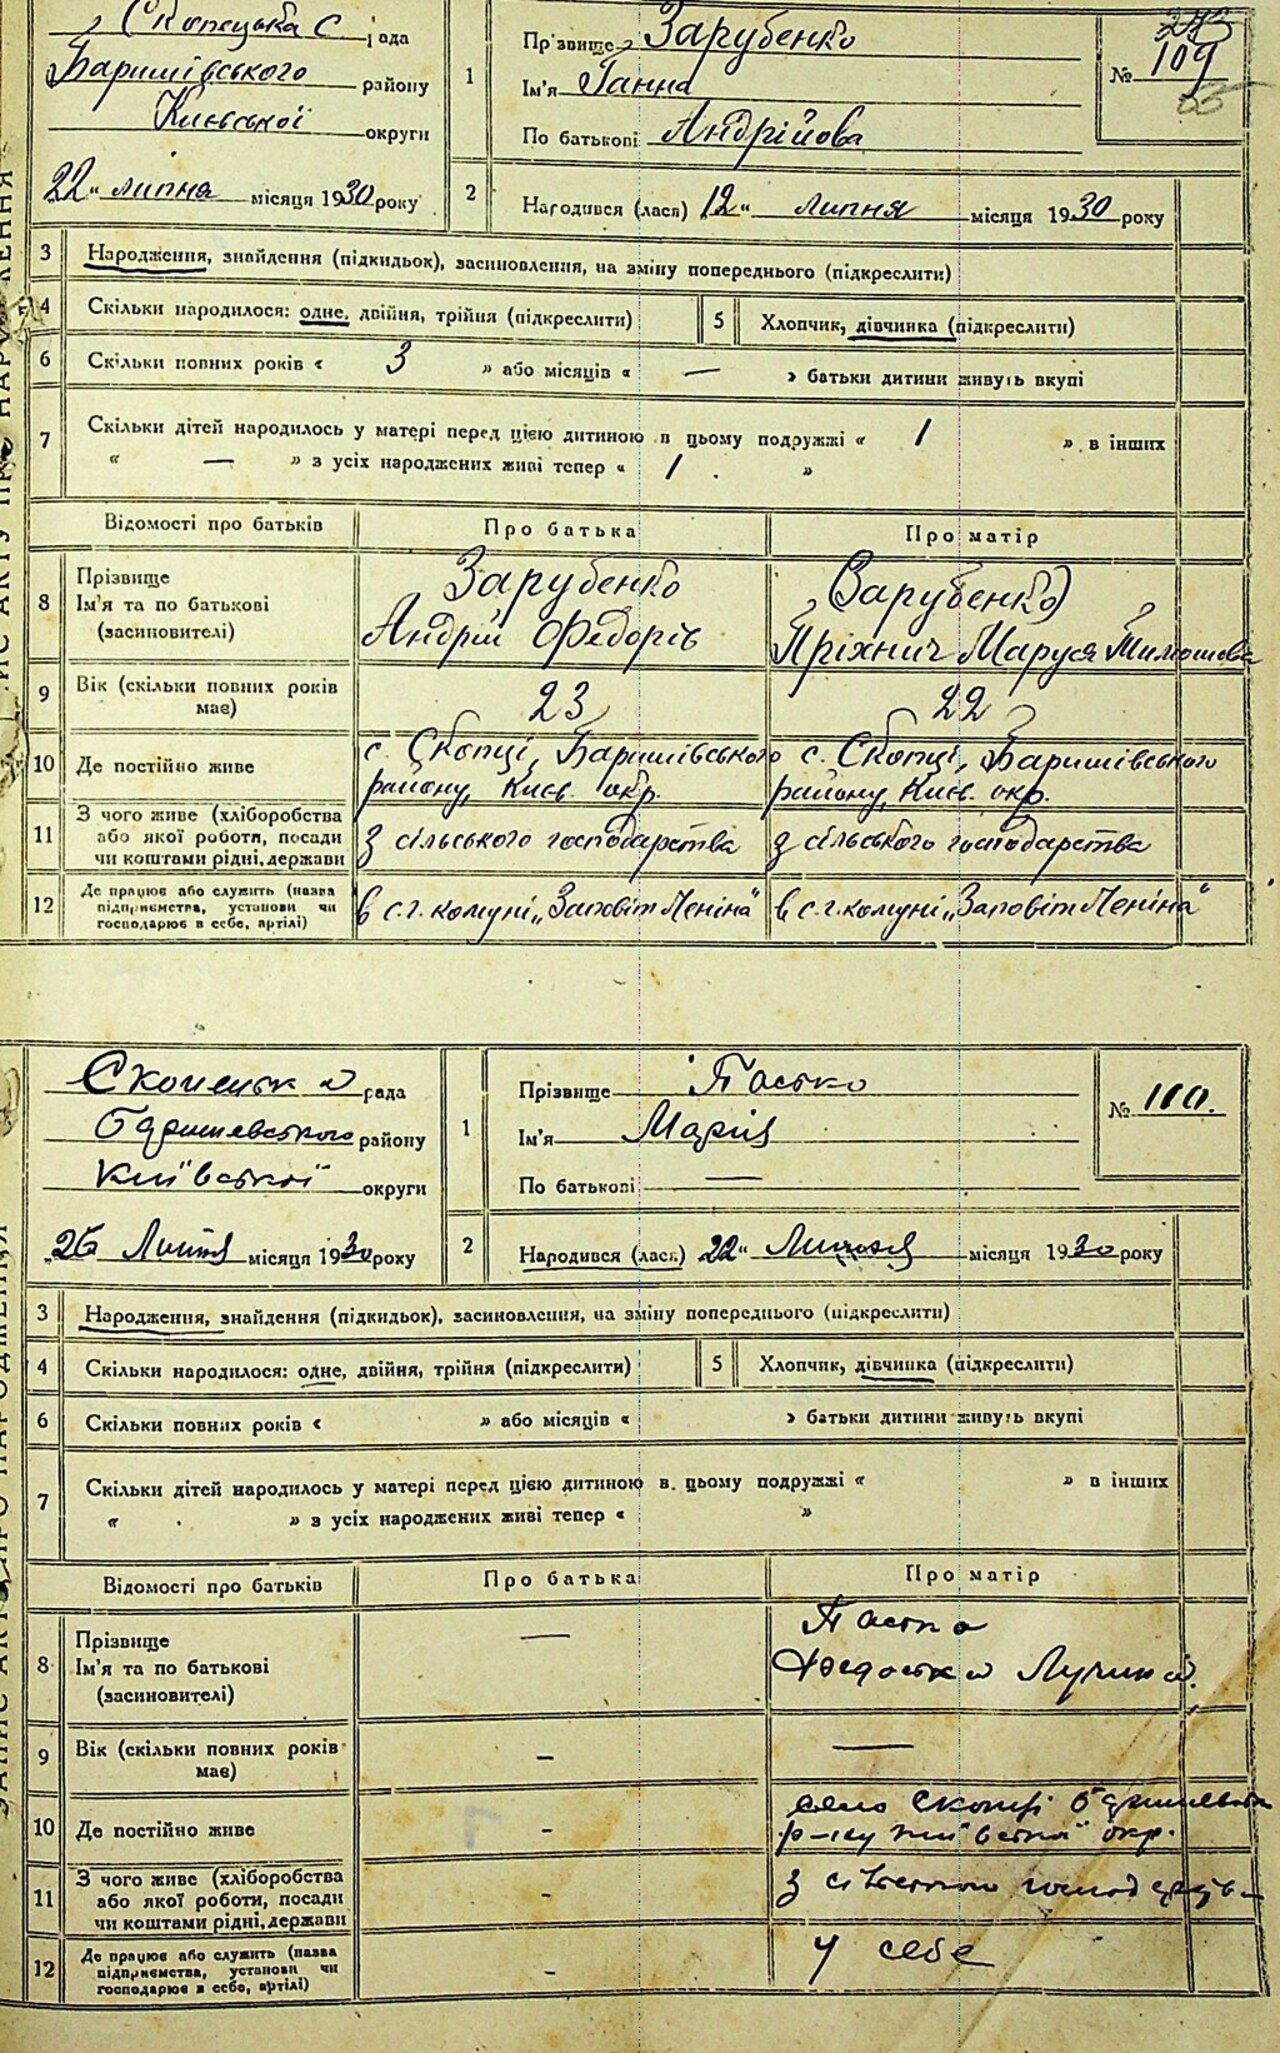 Скопецька с. рада
Баришівського району
Київської округи
22 " липня місяця 1930 року
1
Прізвище Зарубенко
Ім'я Ганна
По батькові Андрійова
№ 109
2
Народився (лася) 12 " липня місяця 1930 року
3 Народження, знайдення (підкидьок), засиновлення, на зміну попереднього (підкреслити)
4 Скільки народилося: одне, двійня, трійня (підкреслити)
5 Хлопчик, дівчинка (підкреслити)
6 Скільки повних років « 3 » або місяців « — » батьки дитини живуть вкупі
7 Скільки дітей народилось у матері перед цією дитиною в цьому подружжі « 1 » в інших
« — » з усіх народжених живі тепер « 1 »
Відомості про батьків Про батька Про матір
8 Прізвище
Ім'я та по батькові
(засиновителі)
Зарубенко
Андрій Федорів
(Зарубенко)
Маруся
9 Вік (скільки повних років
має)
23
22
10 Де постійно живе
с. Скопці, Баришівського
району, Києв. окр.
с. Скопці, Баришівського
району, Києв. окр.
11 З чого живе (хліборобства
або якої роботи, посади
чи коштами рідні, держави
з сільського господарства
з сільського господарства
12 Де працює або служить (назва
підприємства, установи чи
господарює в себе, артілі)
в с.г. комуні „Заповіт Леніна"
в с.г. комуні „Заповіт Леніна"
Скопецька рада
району
Київської округи
26 Липня місяця 1930 року
1
Прізвище Пасько
Ім'я Марія
По батькові —
№ 110.
2
Народився (лася) 22 " Липня місяця 1930 року
3 Народження, знайдення (підкидьок), засиновлення, на зміну попереднього (підкреслити)
4 Скільки народилося: одне, двійня, трійня (підкреслити)
5 Хлопчик, дівчинка (підкреслити)
6 Скільки повних років « » або місяців « » батьки дитини живуть вкупі
7 Скільки дітей народилось у матері перед цією дитиною в цьому подружжі « » в інших
« » з усіх народжених живі тепер « »
Відомості про батьків Про батька Про матір
8 Прізвище
Ім'я та по батькові
(засиновителі)
—
Пасько
9 Вік (скільки повних років
має)
—
—
10 Де постійно живе
—
село Скопці
окр.
11 З чого живе (хліборобства
або якої роботи, посади
чи коштами рідні, держави
—
з
12 Де працює або служить (назва
підприємства, установи чи
господарює в себе, артілі)
—
у себе